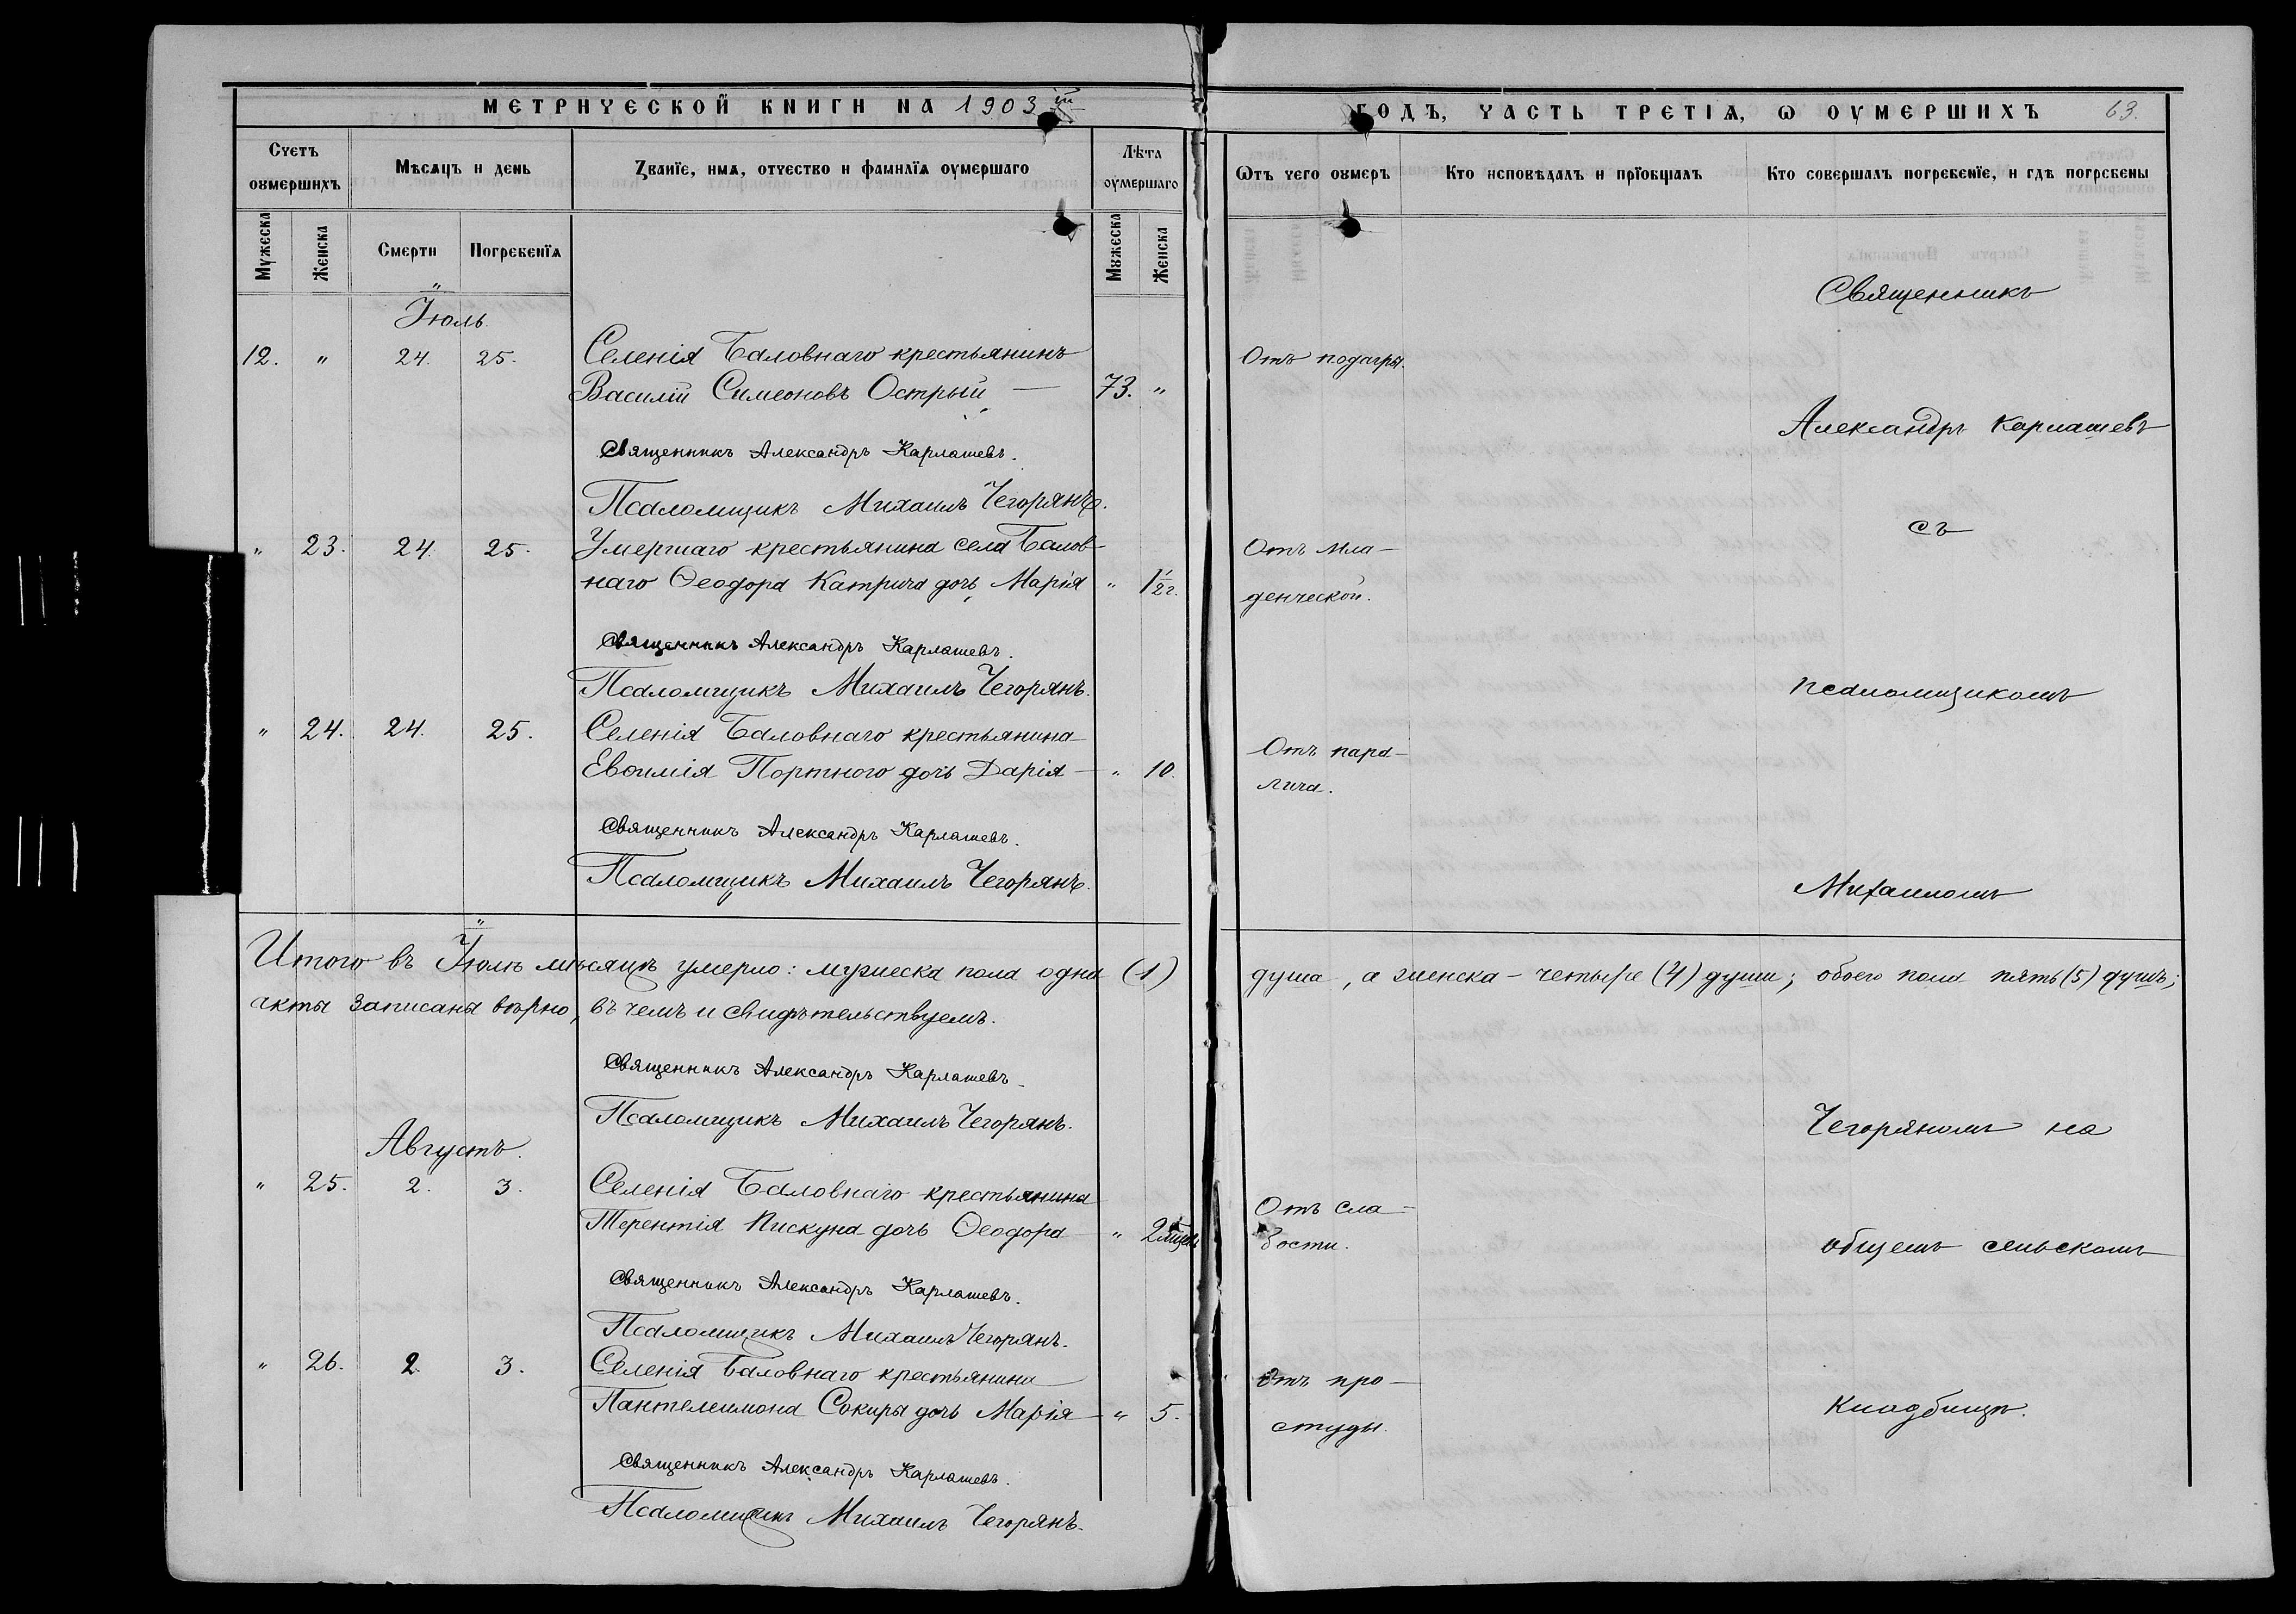 МЕТРИЧЕСКОЙ КНИГИ НА 1903 й
ГОДЪ, ЧАСТЬ ТРЕТІѦ, Ѡ ОУМЕРШИХЪ 63.
Счетъ оумершихъ
Мѣсѧцъ и день
Званїе, имѧ, отчество и фамилїѧ оумершаго
Лѣта оумершаго
Ѿтъ чего оумеръ
Кто исповѣдалъ и прїобщалъ
Кто совершалъ погребенїе, и гдѣ погребены
Мужеска
Женска
Смерти
Погребенїѧ
Мужеска
Женска
Іюль.
Священникъ
12. " 24. 25. Селенія Баловнаго крестьянинъ
Отъ подагры.
Василій Симеоновъ Острый — 73. "
Александръ Карлашевъ
Священникъ Александръ Карлашевъ.
Псаломщикъ Михаилъ Чегорянъ.
съ
" 23. 24. 25. Умершаго крестьянина села Балов-
Отъ мла-
наго Ѳеодора Катрича дочь Марія " 1 1/2 г.
денческой.
Священникъ Александръ Карлашевъ.
Псаломщикъ Михаилъ Чегорянъ.
псаломщикомъ
" 24. 24. 25. Селенія Баловнаго крестьянина
Отъ пара-
Евѳимія Портного дочь Дарія — " 10.
лича.
Священникъ Александръ Карлашевъ.
Псаломщикъ Михаилъ Чегорянъ.
Михаиломъ
Итого въ Іюлѣ мѣсяцѣ умерло: мужеска пола одна (1) душа, а женска — четыре (4) души; обоего пола пять (5) душъ;
акты записаны вѣрно, въ чемъ и свидѣтельствуемъ.
Священникъ Александръ Карлашевъ.
Псаломщикъ Михаилъ Чегорянъ.
Чегоряномъ на
Августъ.
" 25. 2. 3. Селенія Баловнаго крестьянина
Отъ сла-
Терентія Пискуна дочь Ѳеодора " 2 мѣсяц.
бости.
общемъ сельскомъ
Священникъ Александръ Карлашевъ.
Псаломщикъ Михаилъ Чегорянъ.
" 26. 2. 3. Селенія Баловнаго крестьянина
Отъ про-
Пантелеимона Сокиры дочь Марія — " 5.
студы.
кладбищѣ.
Священникъ Александръ Карлашевъ.
Псаломщикъ Михаилъ Чегорянъ.